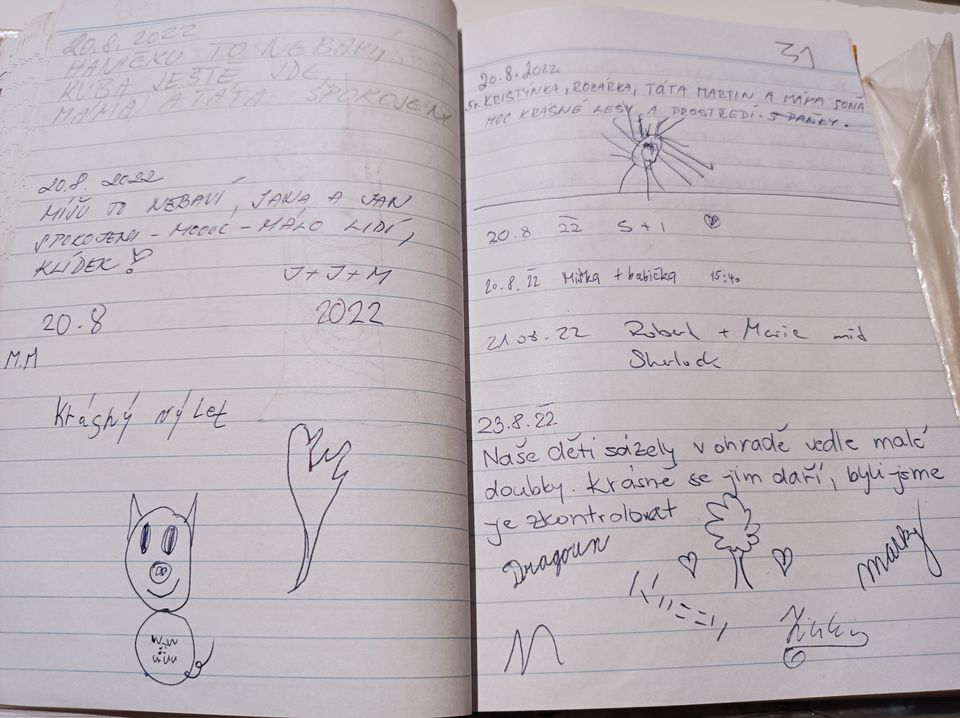 20.8.2022
HANIČKU TO NEBAVÍ,
KUBA JEŠTĚ JDE,
MÁMA A TÁTA SPOKOJENÝ
20.8. 2022
MÍŠU TO NEBAVÍ, JANA A JAN
SPOKOJENI - MOOOC - MÁLO LIDÍ,
KLÍDEK!
J+J+M
20.8 2022
M.M
Krásný výlet
31
20.8.2022
KRISTÝNKA, ROZÁRKA, TÁTA MARTIN A MÁMA SOŇA
MOC KRÁSNÉ LESY A PROSTŘEDÍ. S DAŇKY.
20.8 22 S + I
20.8.22 Miška + babička 15:40
21.08.22 Robert + Marie mit
Sherlock
23.8.22
Naše děti sázely v ohradě vedle malé
doubky. Krásně se jim daří, byli jsme
je zkontrolovat
Dragoun